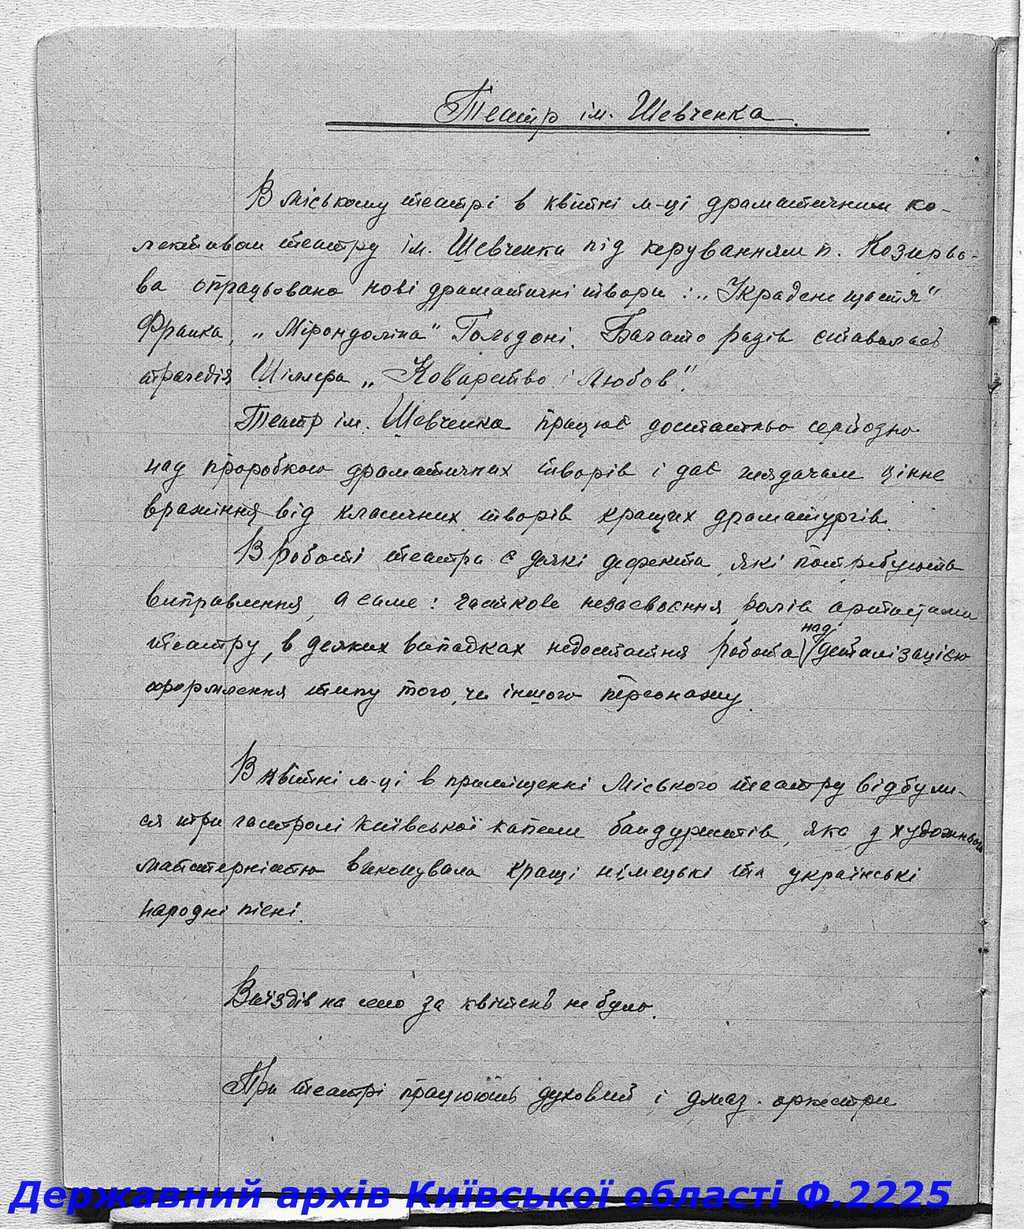 Театр ім. Шевченка.
В міському театрі в квітні м-ці драматичним ко-
лективом театру ім. Шевченка під керуванням п. Козирьо-
ва опрацьовано нові драматичні твори: „Украдене щастя"
Франка, „Мірондоліна" Гольдоні. Багато разів ставилась
трагедія Шіллера „Коварство і любов".
Театр ім. Шевченка працює достатньо серйозно
над проробкою драматичних творів і дає глядачам цінне
враження від класичних творів кращих драматургів.
В роботі театра є деякі дефекти, які потребують
виправлення, а саме: часткове незасвоєння ролів артистами
театру, в деяких випадках недостатня робота над деталізацією
оформлення типу того чи іншого персонажу.
В квітні м-ці в приміщенні міського театру відбули-
ся три гастролі Київської капели бандуристів, яка з художньою
майстерністю виконувала кращі німецькі та українські
народні пісні.
Виїздів на село за квітень не було.
При театрі працюють духовий і джаз. оркестри
Державний архів Київської області Ф.2225